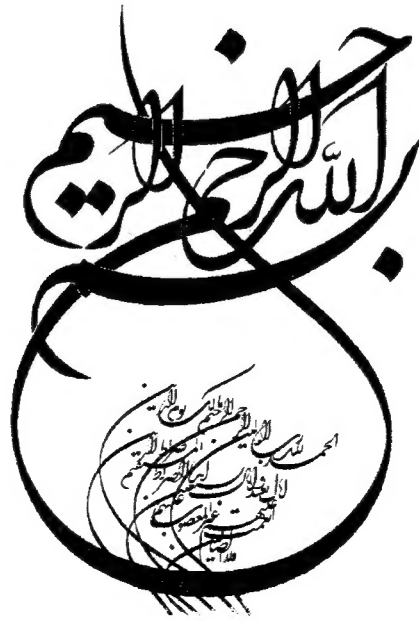 بسم الله الرحمن الرحيم
الحمد لله رب العالمين الرحمن الرحيم مالك يوم الدين
اياك نعبد و اياك نستعين اهدنا الصراط المستقيم
صراط الذين انعمت عليهم
غير المغضوب عليهم
و لا الضالين